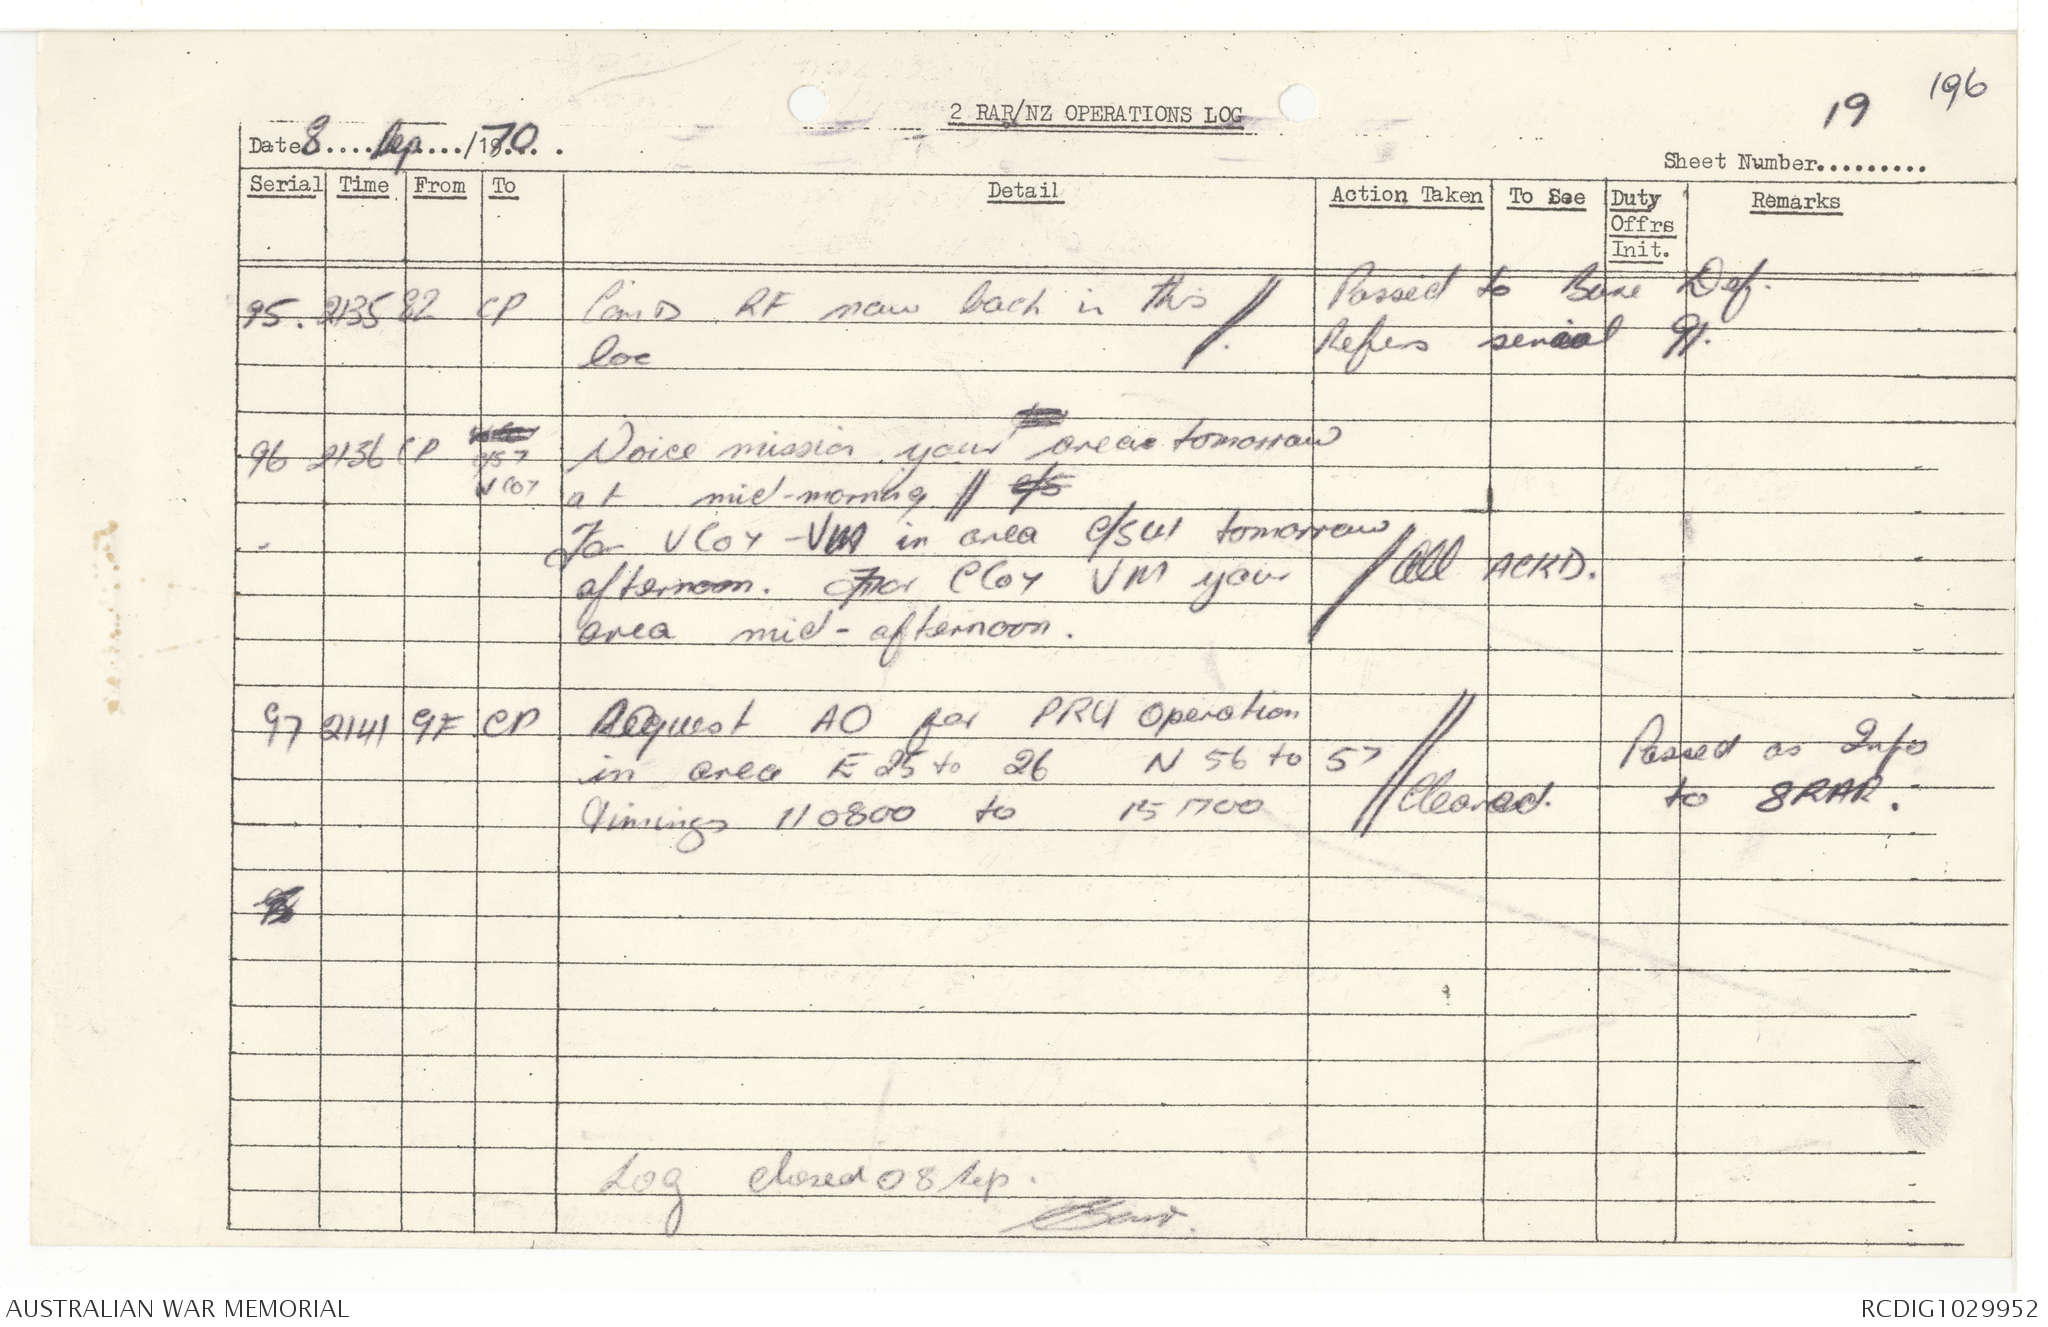 196
19
2 RAR/NZ OPERATIONS LOG
Date 8....Sep..../1970...
Sheet Number..........
Serial Time From To Detail Action Taken To See Duty Offrs Init. Remarks
95. 2135 82 CP RF now back in this // Passed to Base Def.
loc Refers serial 91.
96 2136 CP Voice mission your area tomorrow
V Coy at mid-morning // c/s
For V Coy - VM in area c/s U1 tomorrow
afternoon. For C Coy VM your // All ACKD.
area mid-afternoon.
97 2141 9F CP Request AO for PRU operation
in area E 25 to 26 N 56 to 57 // Passed as Info
Timings 110800 to 151700 Cleared. to 8RAR.
Log closed 08 Sep.
AUSTRALIAN WAR MEMORIAL
RCDIG1029952